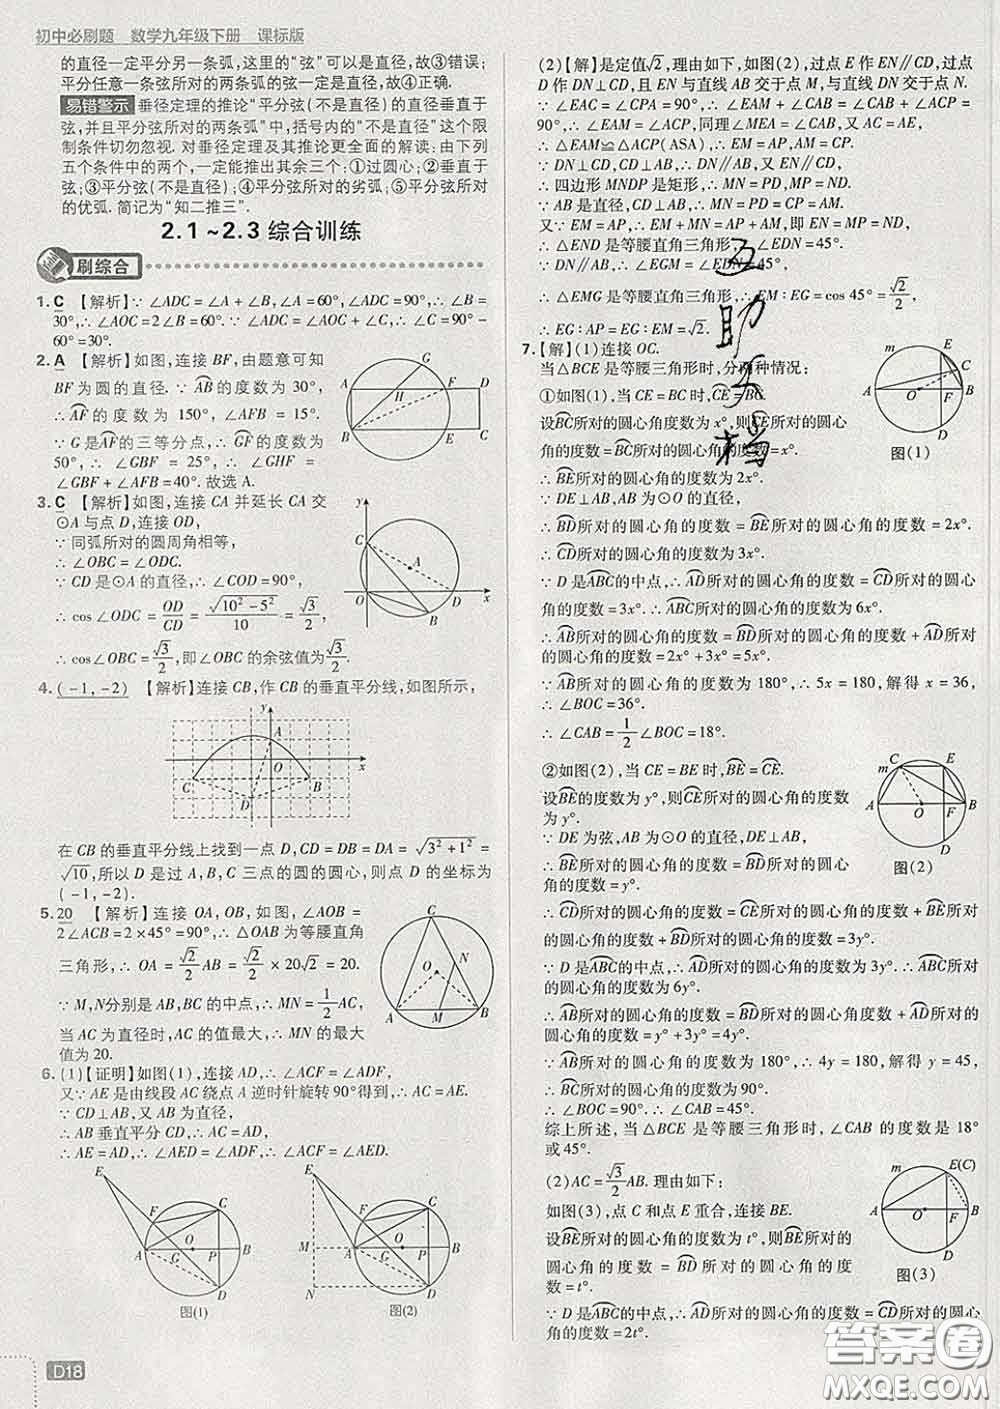 初中必刷题　数学九年级下册　课标版
的直径一定平分另一条弧,这里的“弦”可以是直径,故③错误;
平分任意一条弦所对的两条弧的弦一定是直径,故④正确.
易错警示 垂径定理的推论“平分弦(不是直径)的直径垂直于
弦,并且平分弦所对的两条弧”中,括号内的“不是直径”这个限
制条件切勿忽视. 对垂径定理及其推论更全面的解读:由下列
五个条件中的两个,一定能推出其余三个:①过圆心;②垂直于
弦;③平分弦(不是直径);④平分弦所对的劣弧;⑤平分弦所对
的优弧. 简记为“知二推三”.
2.1~2.3 综合训练
刷综合
1. C 【解析】∵ ∠ADC = ∠A + ∠B,∠A = 60°,∠ADC = 90°,∴ ∠B =
30°,∴ ∠AOC = 2∠B = 60°. ∵ ∠ADC = ∠AOC + ∠C,∴ ∠C = 90° -
60° = 30°.
2. A 【解析】如图,连接 BF,由题意可知
BF 为圆的直径. ∵ A͡B 的度数为 30°,
∴ A͡F 的度数为 150°,∠AFB = 15°.
∵ G 是 A͡F 的三等分点,∴ G͡F 的度数为
50°,∴ ∠GBF = 25°,∴ ∠GHF =
∠GBF + ∠AFB = 40°. 故选 A.
A G F D H B E C
3. C 【解析】如图,连接 CA 并延长 CA 交
⊙A 与点 D,连接 OD,
∵ 同弧所对的圆周角相等,
∴ ∠OBC = ∠ODC.
∵ CD 是⊙A 的直径,∴ ∠COD = 90°,
∴ cos∠ODC = OD/CD = √(10² - 5²)/10 = √3/2,
∴ cos∠OBC = √3/2,即∠OBC 的余弦值为 √3/2.
y C A O B D x
4. (-1,-2) 【解析】连接 CB,作 CB 的垂直平分线,如图所示,
y A O x C B D
在 CB 的垂直平分线上找到一点 D,CD = DB = DA = √(3² + 1²) =
√10,所以 D 是过 A,B,C 三点的圆的圆心,则点 D 的坐标为
(-1,-2).
5. 20 【解析】连接 OA,OB,如图,∠AOB =
2∠ACB = 2×45° = 90°,∴ △OAB 为等腰直角
三角形,∴ OA = √2/2 AB = √2/2 × 20√2 = 20.
∵ M,N分别是 AB,BC 的中点,∴ MN = 1/2 AC,
当 AC 为直径时,AC 的值最大,∴ MN 的最大
值为 20.
C N O A M B
6. (1)【证明】如图(1),连接 AD,∴ ∠ACF = ∠ADF,
又∵ AE 是由线段 AC 绕点 A 逆时针旋转 90°得到,∴ AE = AC.
∵ CD⊥AB,又 AB 为直径,
∴ AB 垂直平分 CD,∴ AC = AD.
∴ AE = AD,∴ ∠AED = ∠ADF,∴ ∠ACF = ∠AED.
E F C A G O P B D
图(1)
E F C M A G O P B N D
图(2)
D18
(2)【解】是定值√2,理由如下,如图(2),过点 E 作 EN∥CD,过点
D 作 DN⊥CD,且 EN 与直线 AB 交于点 M,与直线 DN 交于点 N.
∵ ∠EAC = ∠CPA = 90°,∴ ∠EAM + ∠CAB = ∠CAB + ∠ACP =
90°,∴ ∠EAM = ∠ACP,同理∠MEA = ∠CAB. 又∵ AC = AE,
∴ △EAM≌△ACP(ASA),∴ EM = AP,AM = CP.
∵ DN⊥CD,CD⊥AB,∴ DN∥AB. 又∵ EN∥CD,
∴ 四边形 MNDP 是矩形,∴ MN = PD,MP = DN.
∵ AB 是直径,CD⊥AB,∴ MN = PD = CP = AM.
又∵ EM = AP,∴ EM + MN = AP + AM,即 EN = MP = DN,
∴ △END 是等腰直角三角形,∴ ∠EDN = 45°.
∵ DN∥AB,∴ ∠EGM = ∠EDN = 45°,
∴ △EMG 是等腰直角三角形,∴ EM∶EG = cos 45° = √2/2,
∴ EG∶AP = EG∶EM = √2.
7. 【解】(1)连接 OC.
当△BCE 是等腰三角形时,分两种情况:
①如图(1),当 CE = BC 时,C͡E = B͡C.
设B͡C所对的圆心角度数为 x°,则C͡E所对的圆心
角的度数 = B͡C所对的圆心角的度数 = x°.
∴ B͡E所对的圆心角的度数为 2x°.
∵ DE⊥AB,AB 为⊙O 的直径,
∴ B͡D所对的圆心角的度数 = B͡E所对的圆心角的度数 = 2x°.
∴ C͡D所对的圆心角的度数为 3x°.
∵ D 是A͡BC的中点,∴ A͡D所对的圆心角的度数 = C͡D所对的圆心
角的度数 = 3x°. ∴ A͡BC所对的圆心角的度数为 6x°.
∴ A͡B所对的圆心角的度数 = B͡D所对的圆心角的度数 + A͡D所对
的圆心角的度数 = 2x° + 3x° = 5x°.
∵ A͡B所对的圆心角的度数为 180°,∴ 5x = 180,解得 x = 36,
∴ ∠BOC = 36°.
∴ ∠CAB = 1/2 ∠BOC = 18°.
m E C A O F B D
图(1)
②如图(2),当 CE = BE 时,B͡E = C͡E.
设B͡E的度数为 y°,则C͡E所对的圆心角的度数
为 y°.
∵ DE 为弦,AB 为⊙O 的直径,DE⊥AB,
∴ B͡E所对的圆心角的度数 = B͡D所对的圆心
角的度数 = y°.
∴ C͡D所对的圆心角的度数 = C͡E所对的圆心角的度数 + B͡E所对
的圆心角的度数 + B͡D所对的圆心角的度数 = 3y°.
∵ D 是A͡BC的中点,∴ A͡D所对的圆心角的度数为 3y°. ∴ A͡BC所对
的圆心角的度数为 6y°.
∴ A͡B所对的圆心角的度数 = B͡D所对的圆心角的度数 + A͡D所对的
圆心角的度数 = y° + 3y° = 4y°.
∵ A͡B所对的圆心角的度数为 180°,∴ 4y = 180,解得 y = 45,
∴ B͡C所对的圆心角的度数为 90°.
∴ ∠BOC = 90°. ∴ ∠CAB = 45°.
综上所述,当△BCE 是等腰三角形时,∠CAB 的度数是 18°
或 45°.
m C E A O F B D
图(2)
(2)AC = √3/2 AB. 理由如下:
如图(3),点 C 和点 E 重合,连接 BE.
设B͡E所对的圆心角的度数为 t°,则B͡E所对的
圆心角的度数 = B͡D所对的圆心角的度数 = t°.
∴ D͡E所对的圆心角的度数为 2t°.
∵ D 是A͡BC的中点,∴ A͡D所对的圆心角的度数 = C͡D所对的圆心角
的度数 = 2t°.
m E(C) A O F B D
图(3)
互助文档
答案圈
MXQE.COM